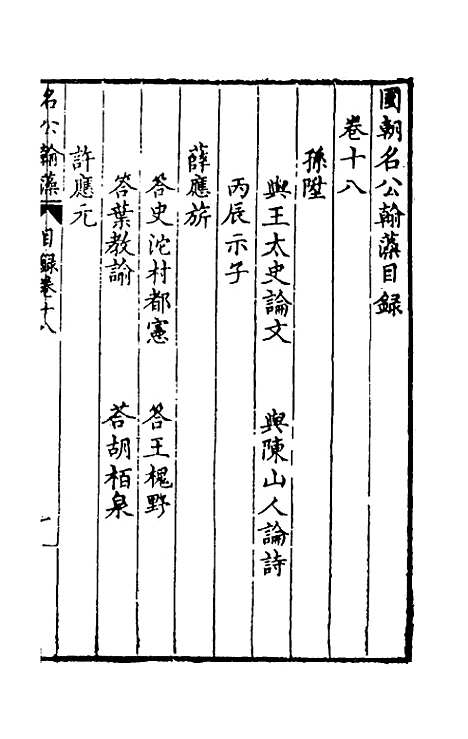 國朝名公翰藻目録
卷十八
孫陞
與王太史論文 與陳山人論詩
丙辰示子
薛應旂
答史沱村都憲 答王槐野
答葉教諭 荅胡栢泉
許應元
名公翰藻 目録卷十八 一